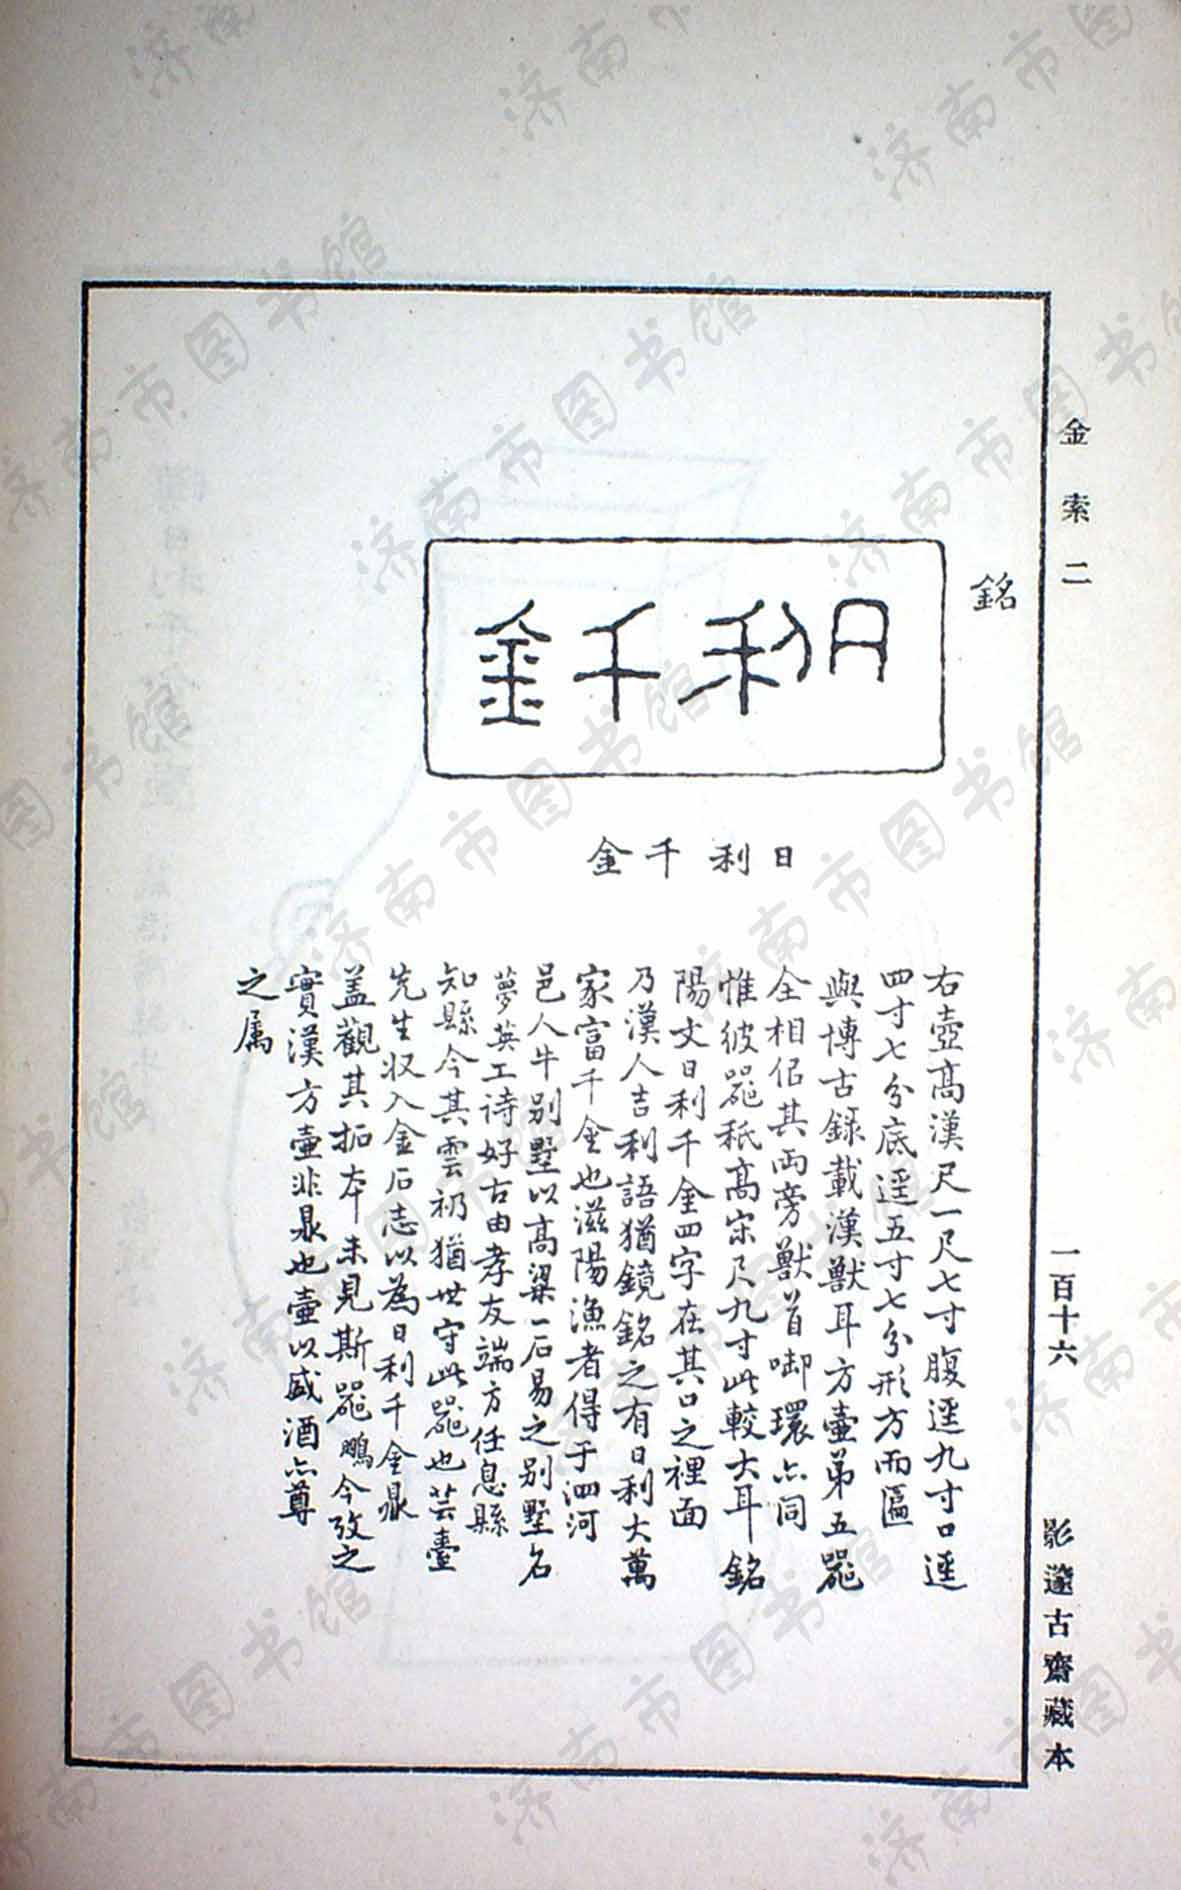 金索二
一百十六
影邃古齋藏本
銘
日利千金
日利千金
右壺高漢尺一尺七寸腹逕九寸口逕
四寸七分底逕五寸七分形方而匾
與博古錄載漢獸耳方壺弟五器
全相侣其兩旁獸首啣環亦同
惟彼器秖高宋尺九寸此較大耳銘
陽文日利千金四字在其口之裡面
乃漢人吉利語猶鏡銘之有日利大萬
家富千金也滋陽漁者得于泗河
邑人牛別墅以高粱一石易之別墅名
夢英工诗好古由孝友端方任息縣
知縣今其雲礽猶世守此器也芸臺
先生収入金石志以為日利千金鼎
盖觀其拓本未見斯器鵬今攷之
實漢方壺非鼎也壺以盛酒亦尊
之属
济南市图书馆